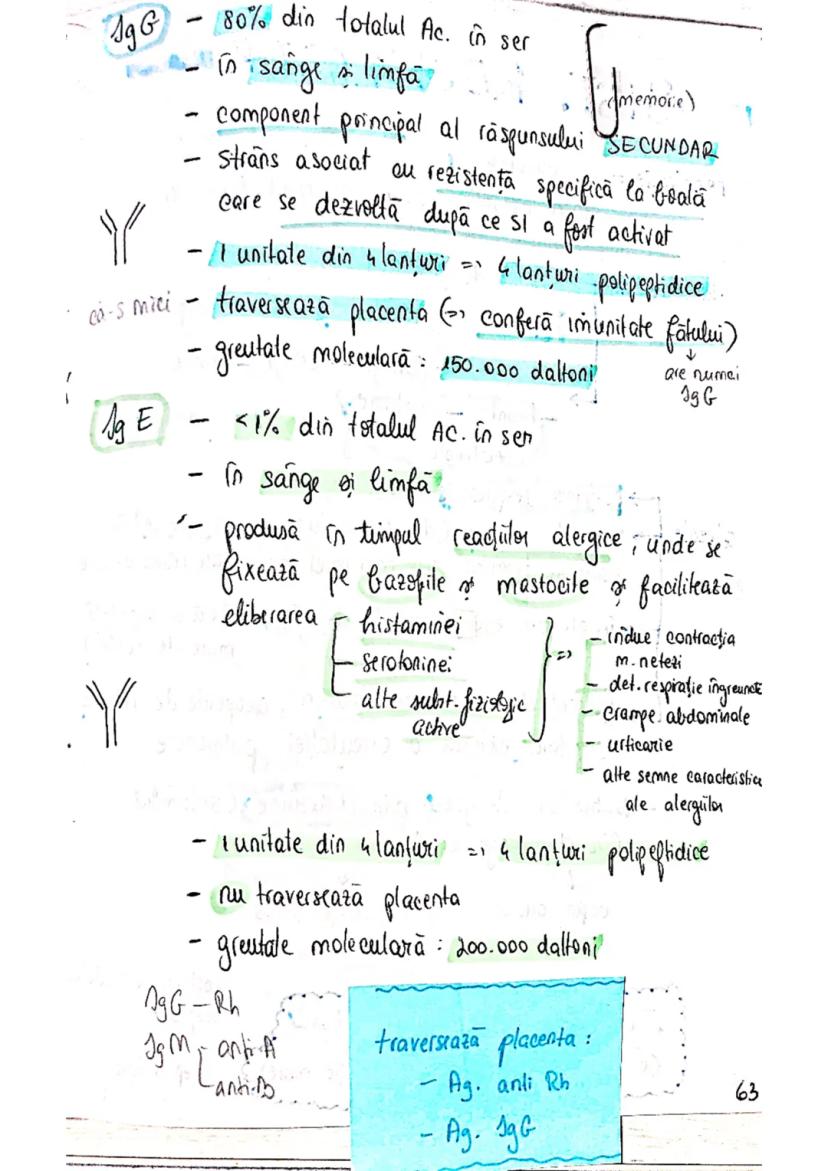 IgG - 80% din totalul Ac. în ser
- în sânge și limfă
(memorie)
- component principal al răspunsului SECUNDAR
- strâns asociat cu rezistență specifică la boală
care se dezvoltă după ce SI a fost activat
- 1 unitate din 4 lanțuri => 4 lanțuri polipeptidice
că-s mici - traversează placenta (=> conferă imunitate fătului)
↓
are numai
IgG
- greutate moleculară: 150.000 daltoni
IgE - <1% din totalul Ac. în ser
- în sânge și limfă
- produsă în timpul reacțiilor alergice, unde se
fixează pe bazofile și mastocite și facilitează
eliberarea histaminei
serotoninei
alte subst. fiziologic
active
=> - induc contracția
m. netezi
- det. respirație îngreunată
- crampe abdominale
- urticarie
- alte semne caracteristice
ale alergiilor
- 1 unitate din 4 lanțuri => 4 lanțuri polipeptidice
- nu traversează placenta
- greutate moleculară: 200.000 daltoni
IgG - Rh
IgM - anti-A
anti-B
traversează placenta:
- Ag. anti Rh
- Ag. IgG
63